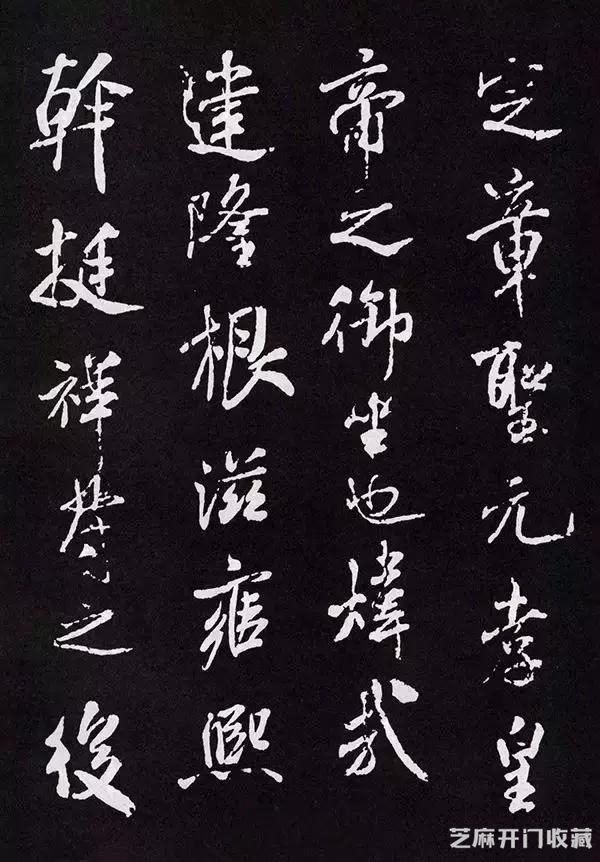 定章聖元孝皇
帝之御坐也煒哉
建隆根滋雍熙
幹挺祥符之後
芝麻开门收藏